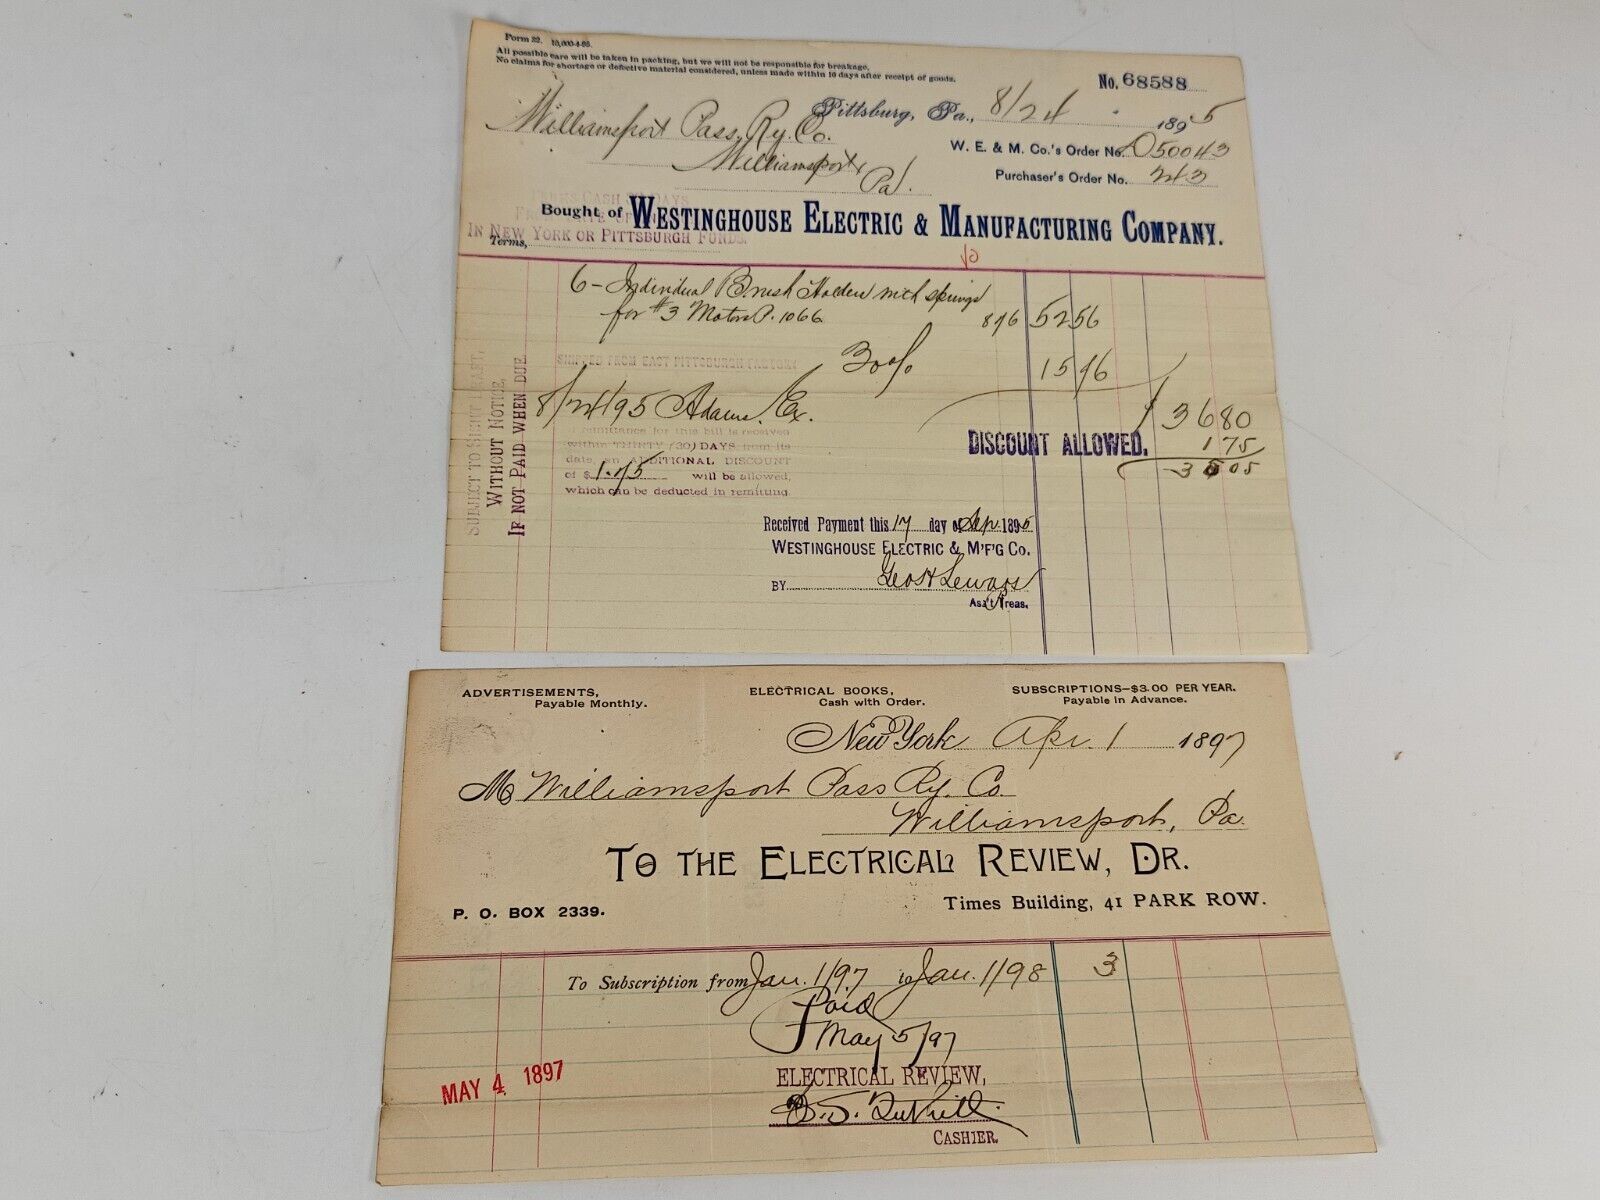 Form 32. 10,000-4-95.
All possible care will be taken in packing, but we will not be responsible for breakage.
No claims for shortage or defective material considered, unless made within 10 days after receipt of goods.
No. 68588
Pittsburg, Pa., 8/24 1895
Williamsport Pass. Ry. Co.
Williamsport, Pa.
W. E. & M. Co.'s Order No. 050043
Purchaser's Order No. 243
Bought of WESTINGHOUSE ELECTRIC & MANUFACTURING COMPANY.
IN NEW YORK OR PITTSBURGH FUNDS.
Terms,
6 - Individual Brush Holder with springs
for #3 Motors P. 1066 876 5256
SHIPPED FROM EAST PITTSBURGH FACTORY
30% 1576
8/24/95 Adams Ex. 3680
DISCOUNT ALLOWED. 175
3505
remittance for this bill is received
within THIRTY (30) DAYS from its
date, an ADDITIONAL DISCOUNT
of $1.75 will be allowed,
which can be deducted in remitting.
SUBJECT TO SIGHT DRAFT,
WITHOUT NOTICE,
IF NOT PAID WHEN DUE
Received Payment this 17 day of Sep. 1895
WESTINGHOUSE ELECTRIC & M'F'G CO.
BY
Ass't Treas.
ADVERTISEMENTS,
Payable Monthly.
ELECTRICAL BOOKS,
Cash with Order.
SUBSCRIPTIONS—$3.00 PER YEAR.
Payable in Advance.
New York Apr. 1 1897
M Williamsport Pass Ry. Co.
Williamsport, Pa.
TO THE ELECTRICAL REVIEW, DR.
P. O. BOX 2339.
Times Building, 41 PARK ROW.
To Subscription from Jan. 1/97 to Jan. 1/98 3
Paid
May 5/97
MAY 4 1897
ELECTRICAL REVIEW,
CASHIER.